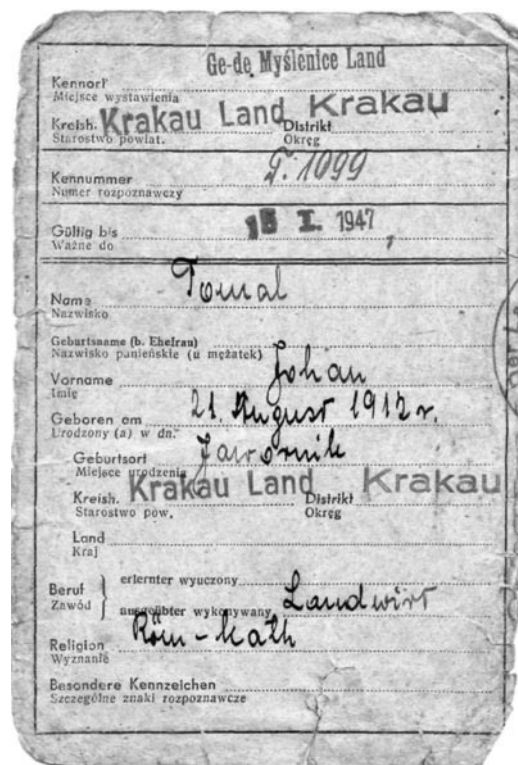 Ge-de Myślenice Land
Kennort
Miejsce wystawienia
Kreish. Krakau Land Distrikt Krakau
Starostwo powiat. Okręg
Kennummer T. 1099
Numer rozpoznawczy
Gültig bis 15 I. 1947
Ważne do
Name Tomal
Nazwisko
Geburtsname (b. Ehefrau)
Nazwisko panieńskie (u mężatek)
Vorname Johan
Imię
Geboren am 21. August 1912 r.
Urodzony (a) w dn.
Geburtsort Jawornik
Miejsce urodzenia
Kreish. Krakau Land Distrikt Krakau
Starostwo pow. Okręg
Land
Kraj
Beruf erlernter wyuczony
Zawód ausgeübter wykonywany Landwirt
Religion Röm-kath
Wyznanie
Besondere Kennzeichen
Szczególne znaki rozpoznawcze